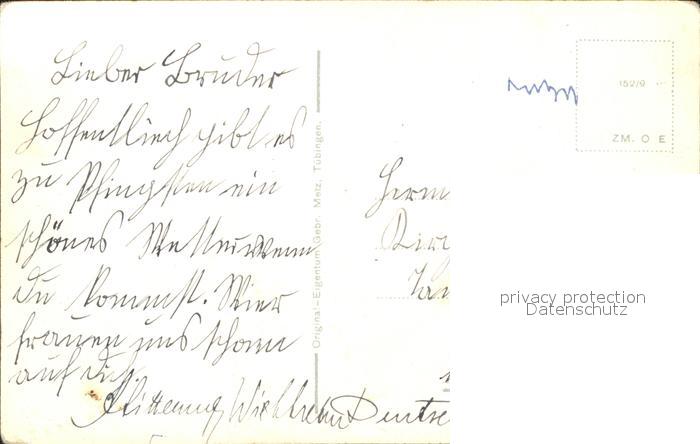 Lieber Bruder
Hoffentliech gibt es
zu Pfingsten ein
schönes Wetter wenn
du kommst. Wier
frauen uns schonn
auf dich.
Original-Eigentum Gebr. Metz, Tübingen.
152/9
ZM. O E
Herm
Kirc
privacy protection
Datenschutz